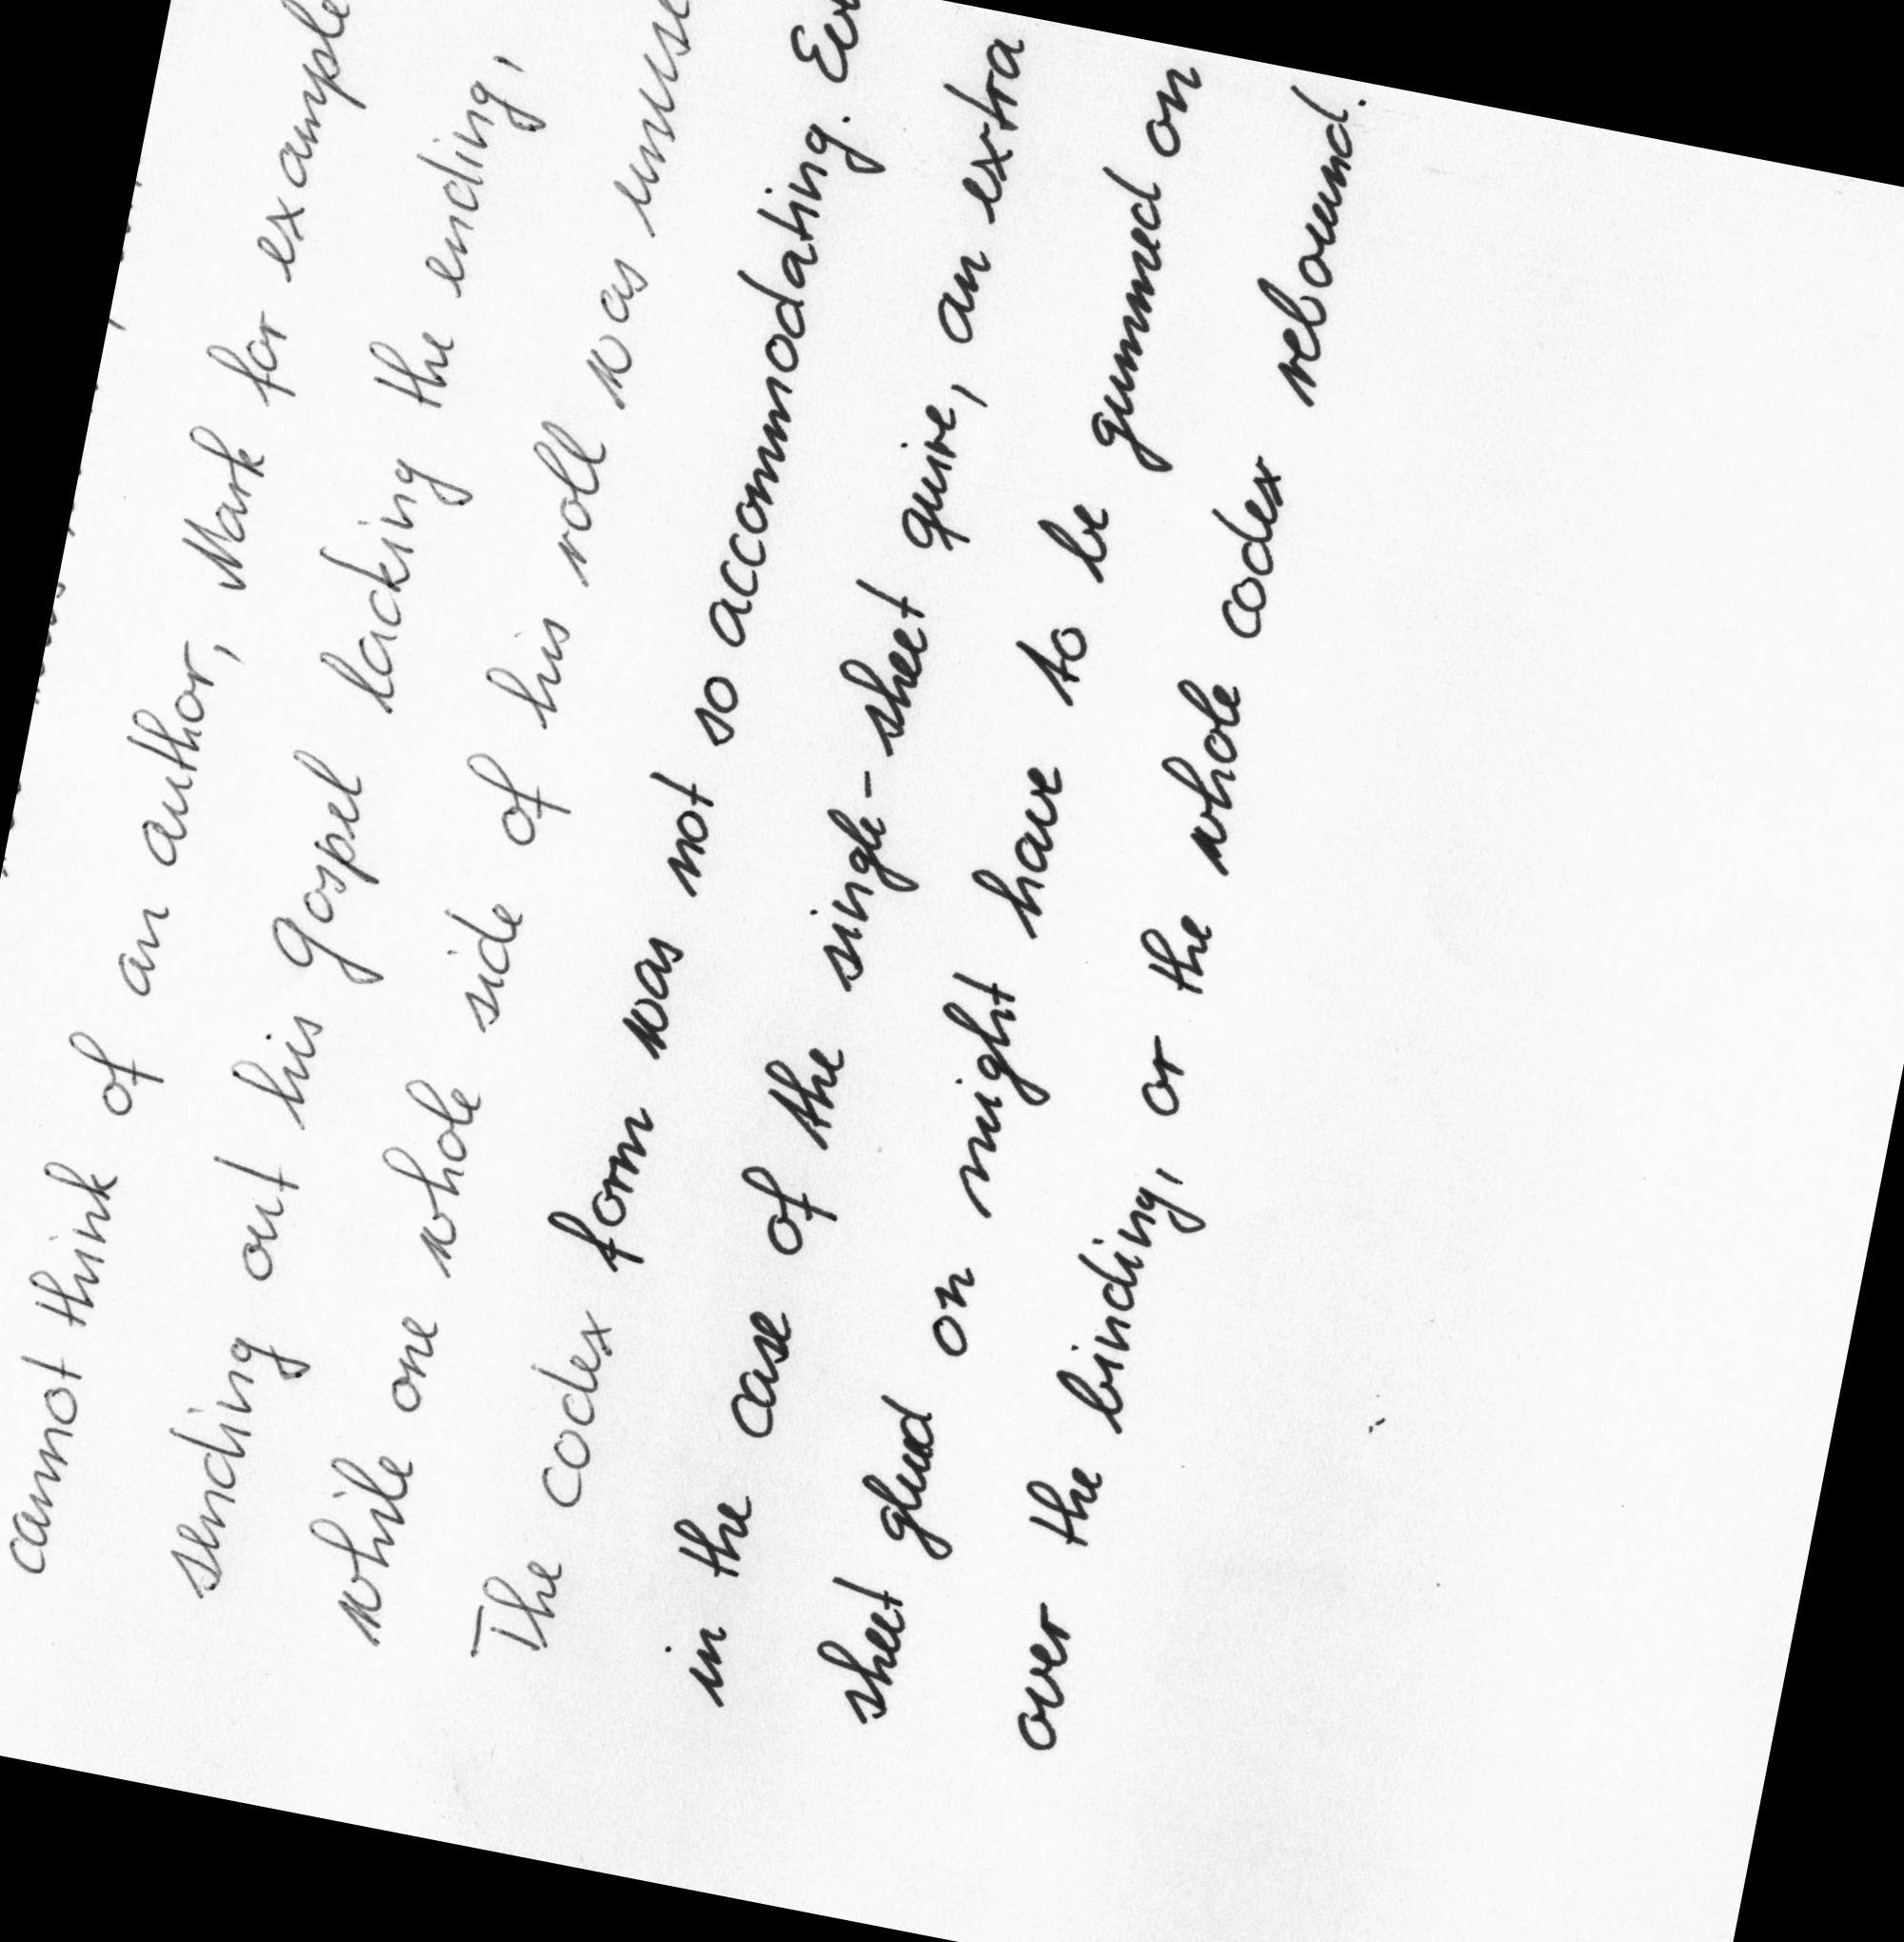 cannot think of an author, Mark for example
sending out his Gospel lacking the ending,
while one whole side of his roll was
The codex form was not so accommodating.
in the case of the single-sheet quire, an extra
sheet glued on might have to be gummed on
over the binding, or the whole codex rebound.